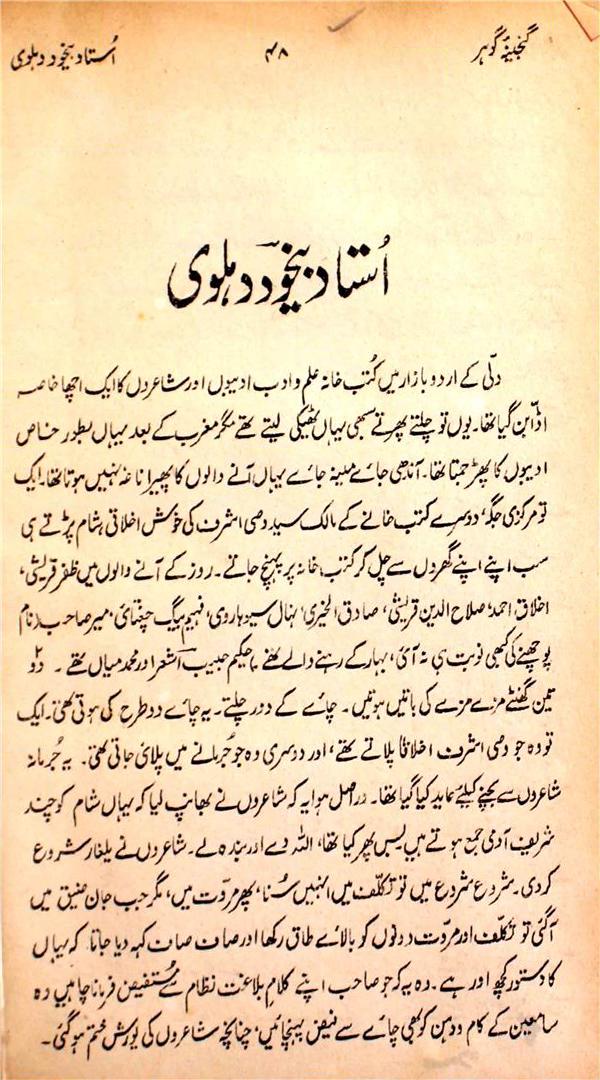 گنجینۂ گوہر ۴۸ اُستاد بیخود دہلوی
اُستاد بیخود دہلوی
دلّی کے اردو بازار میں کُتب خانہ علم و ادب ادیبوں اور شاعروں کا ایک اچھا خاصہ
اڈّا بن گیا تھا۔ یوں تو چلتے پھرتے سبھی یہاں ٹھیکی لیتے تھے مگر مغرب کے بعد یہاں بطور خاص
ادیبوں کا پھڑ جمتا تھا۔ آندھی جائے مینہ جائے یہاں آنے والوں کا پھیرا ناغہ نہیں ہوتا تھا۔ ایک
تو مرکزی جگہ، دوسرے کتب خانے کے مالک سید وصی اشرف کی خوش اخلاقی، شام پڑتے ہی
سب اپنے اپنے گھروں سے چل کر کتب خانہ پر پہنچ جاتے۔ روز کے آنے والوں میں ظفر قریشی،
اخلاق احمد، صلاح الدین قریشی، صادق الخیری، نہال سیوہاروی، فہیم بیگ چغتائی، میر صاحب (نام
پوچھنے کی کبھی نوبت ہی نہ آئی، بہار کے رہنے والے تھے) حکیم حبیب اشعر اور محمد میاں تھے۔ دو
تین گھنٹے مزے مزے کی باتیں ہوتیں۔ چائے کے دور چلتے۔ یہ چائے دو طرح کی ہوتی تھی۔ ایک
تو وہ جو وصی اشرف اخلاقاً پلاتے تھے، اور دوسری وہ جو جُرمانے میں پلائی جاتی تھی۔ یہ جُرمانہ
شاعروں سے بچنے کیلئے عاید کیا گیا تھا۔ دراصل ہوا یہ کہ شاعروں نے بھانپ لیا کہ یہاں شام کو چند
شریف آدمی جمع ہوتے ہیں بس پھر کیا تھا، اللہ دے اور بندہ لے۔ شاعروں نے یلغار شروع
کر دی۔ شروع شروع میں تو تکلّف میں انہیں سُنا، پھر مروّت میں، مگر جب جان ضیق میں
آگئی تو تکلّف اور مروّت دونوں کو بالائے طاق رکھا اور صاف صاف کہہ دیا جاتا کہ یہاں
کا دستور کچھ اور ہے۔ وہ یہ کہ جو صاحب اپنے کلامِ بلاغت نظام سے مُستفیض فرمانا چاہیں وہ
سامعین کے کام و دہن کو بھی چائے سے فیض پہنچائیں، چنانچہ شاعروں کی یورش ختم ہوگئی۔